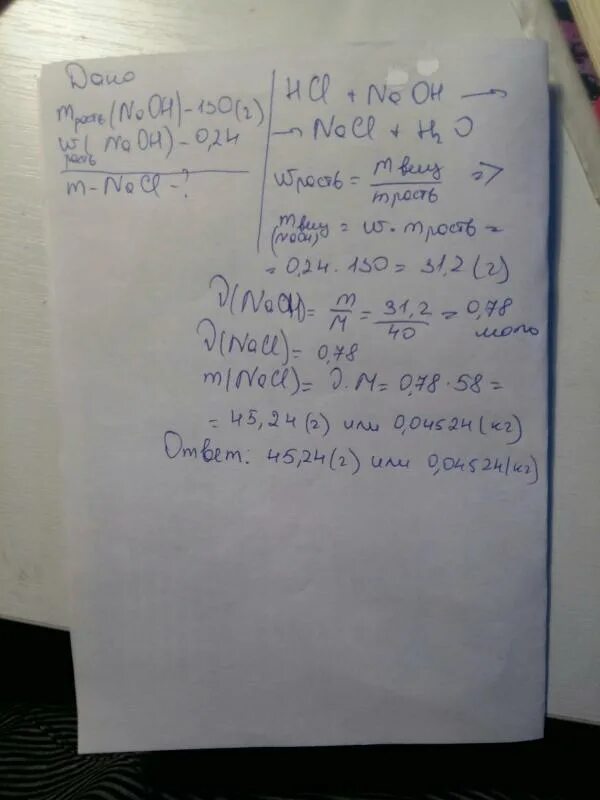 Дано
mраств(NaOH)-130(г)
w( NaOH)-0,24
раств
m-NaCl-?
HCl + NaOH →
→ NaCl + H2O
wраств = mвещ/mраств =>
mвещ = w · mраств =
(NaOH)
= 0,24 · 130 = 31,2 (г)
ν(NaOH)= m/M = 31,2/40 = 0,78
моль
ν(NaCl)= 0,78
m(NaCl)= ν·M= 0,78·58=
= 45,24(г) или 0,04524(кг)
Ответ: 45,24(г) или 0,04524(кг)